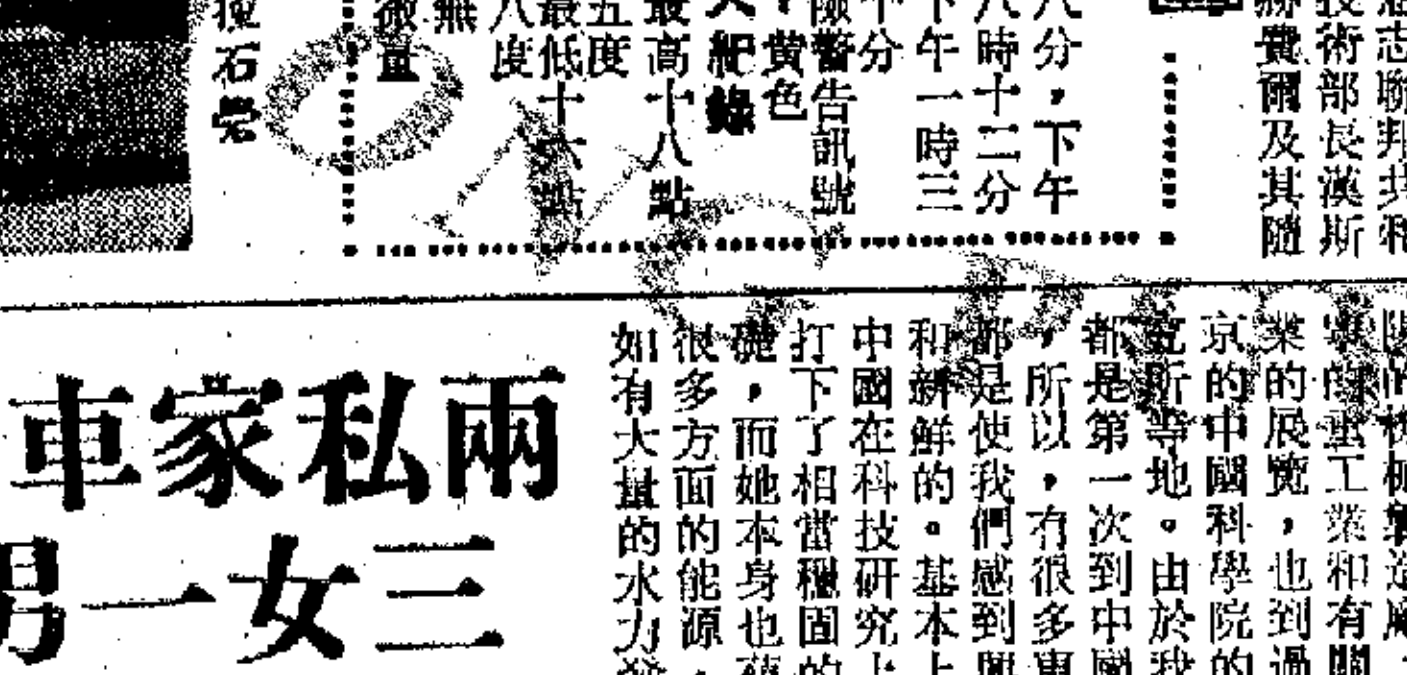 志聯邦共和
技術部長漢斯
赫費爾及其隨
八分，下午
八時十二分
下午一時三
十分
險警告訊號
：黃色
天文紀錄
最高十八點
五度
最低十六點
八度
無
微量
石
陽的機械製造廠
寧的重工業和有關
業的展覽，也到過
京的中國科學院的
究所等地。由於我
都是第一次到中國
，所以，有很多東
都是使我們感到興
和新鮮的。基本上
中國在科技研究上
打下了相當穩固的
礎，而她本身也蘊
很多方面的能源，
如有大量的水力發
兩私家車
三女一男